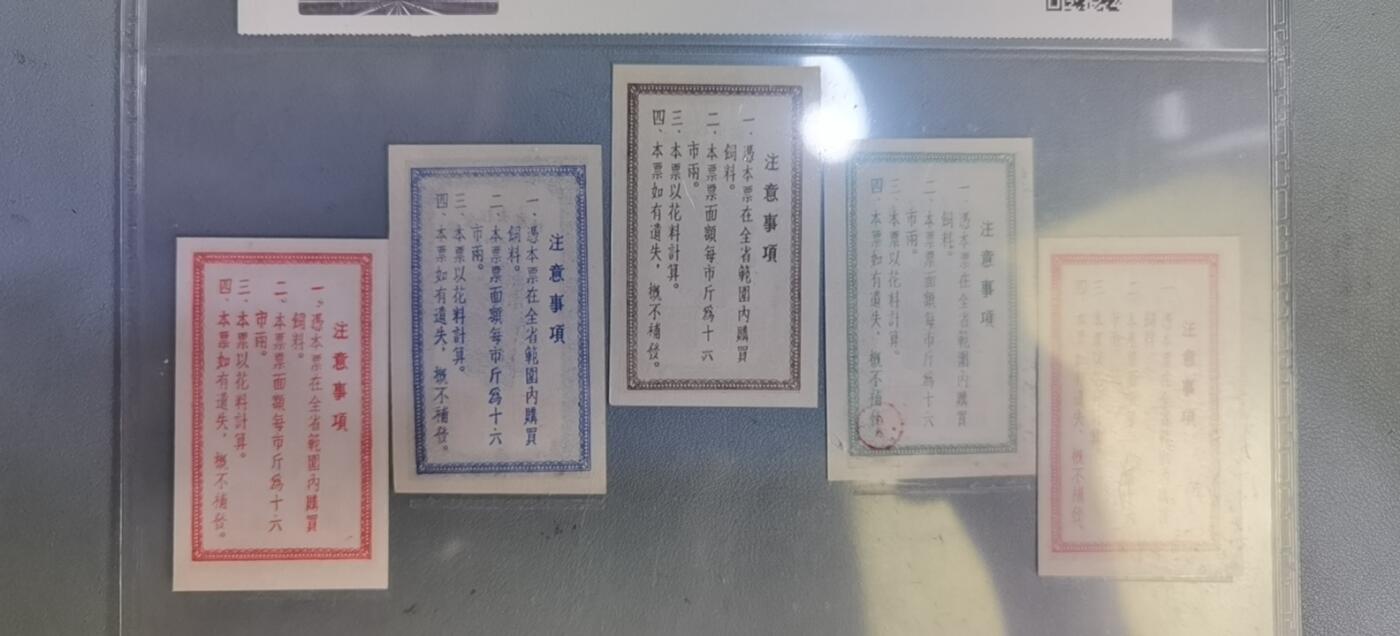 注意事項
一、憑本票在全省範圍內購買
飼料。
二、本票票面額每市斤為十六
市兩。
三、本票以花料計算。
四、本票如有遺失，概不補發。
注意事項
一、憑本票在全省範圍內購買
飼料。
二、本票票面額每市斤為十六
市兩。
三、本票以花料計算。
四、本票如有遺失，概不補發。
注意事項
一、憑本票在全省範圍內購買
飼料。
二、本票票面額每市斤為十六
市兩。
三、本票以花料計算。
四、本票如有遺失，概不補發。
注意事項
一、憑本票在全省範圍內購買
飼料。
二、本票票面額每市斤為十六
市兩。
三、本票以花料計算。
四、本票如有遺失，概不補發。
注意事項
一、
二、
三、
四、遺失，概不補發。